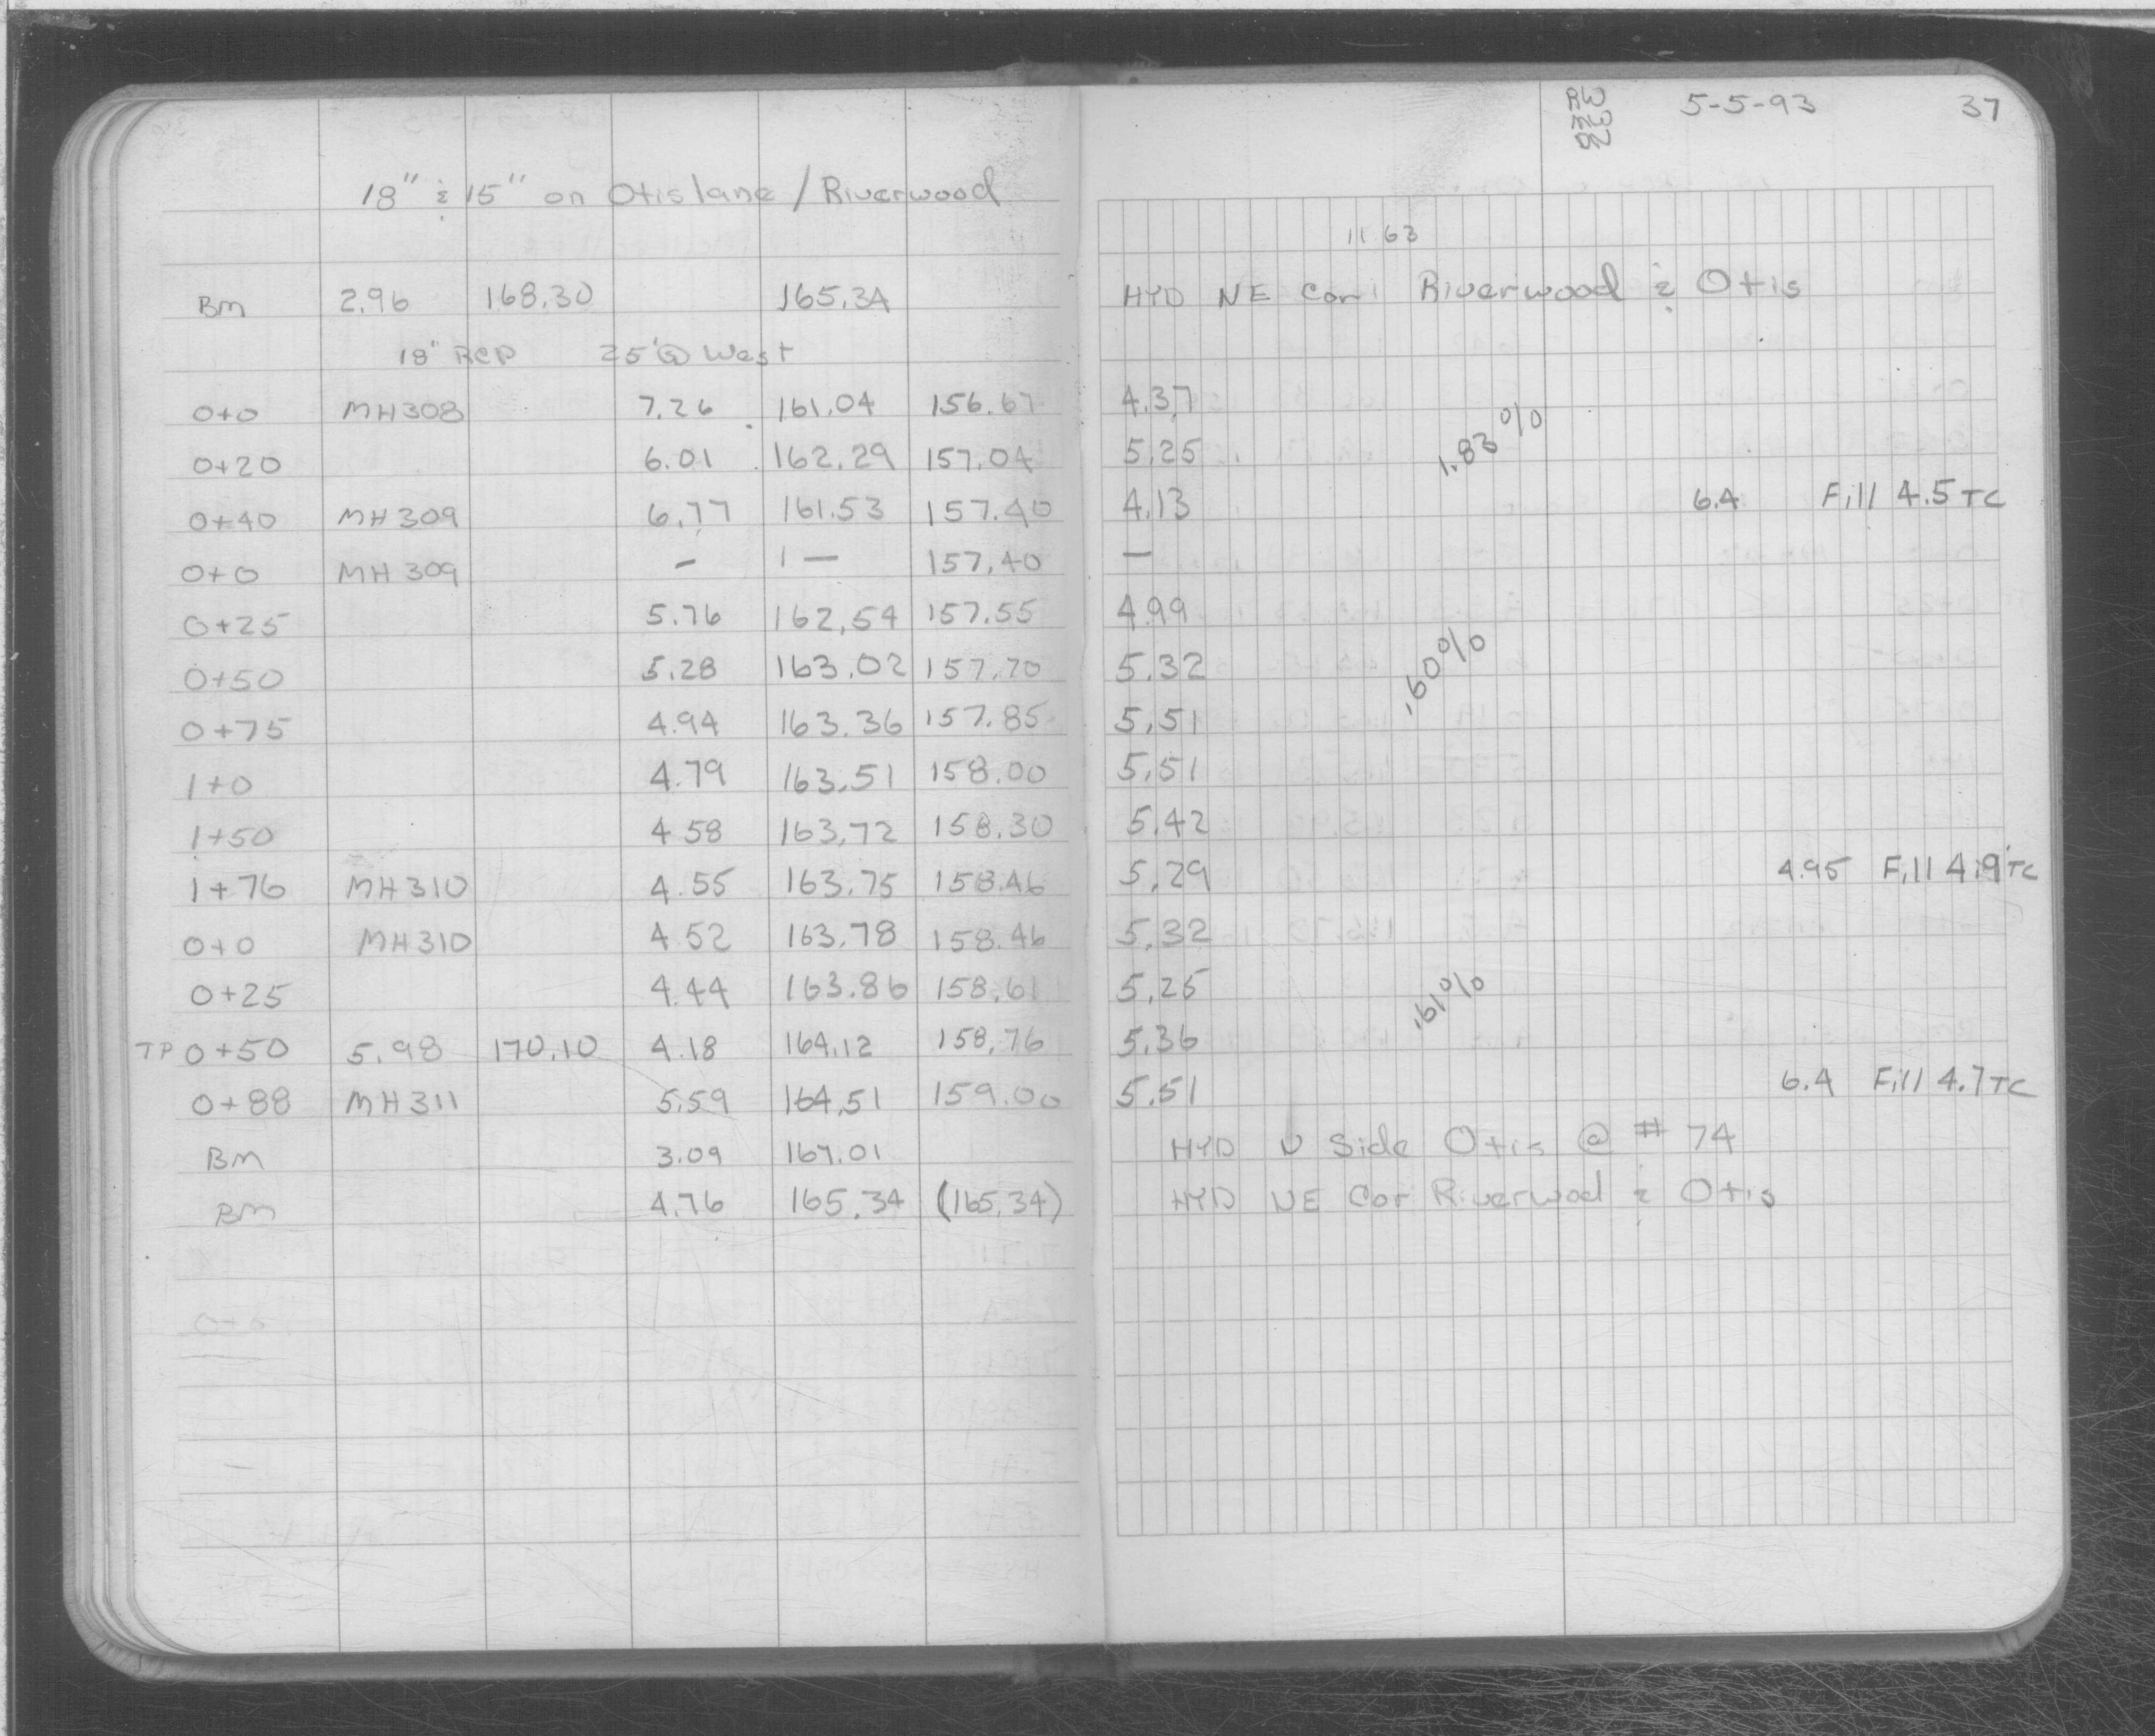 RW 5-5-93 37
18" & 15" on Otis lane / Riverwood
11.63
BM 2.96 168.30 165.34 HYD NE Cor. Riverwood & Otis
18" RCP 25' @ West
0+0 MH308 7.26 161.04 156.67 4.37
1.83%
0+20 6.01 162.29 157.04 5.25
0+40 MH309 6.77 161.53 157.40 4.13 6.4 Fill 4.5 TC
0+0 MH309 – – 157.40 –
0+25 5.76 162.54 157.55 4.99
0+50 5.28 163.02 157.70 5.32 .60%
0+75 4.94 163.36 157.85 5.51
1+0 4.79 163.51 158.00 5.51
1+50 4.58 163.72 158.30 5.42
1+76 MH310 4.55 163.75 158.46 5.29 4.95 Fill 4.9' TC
0+0 MH310 4.52 163.78 158.46 5.32
0+25 4.44 163.86 158.61 5.25 .61%
TP 0+50 5.98 170.10 4.18 164.12 158.76 5.36
0+88 MH311 5.59 164.51 159.00 5.51 6.4 Fill 4.7 TC
BM 3.09 167.01 HYD N Side Otis @ # 74
BM 4.76 165.34 (165.34) HYD NE Cor Riverwod & Otis